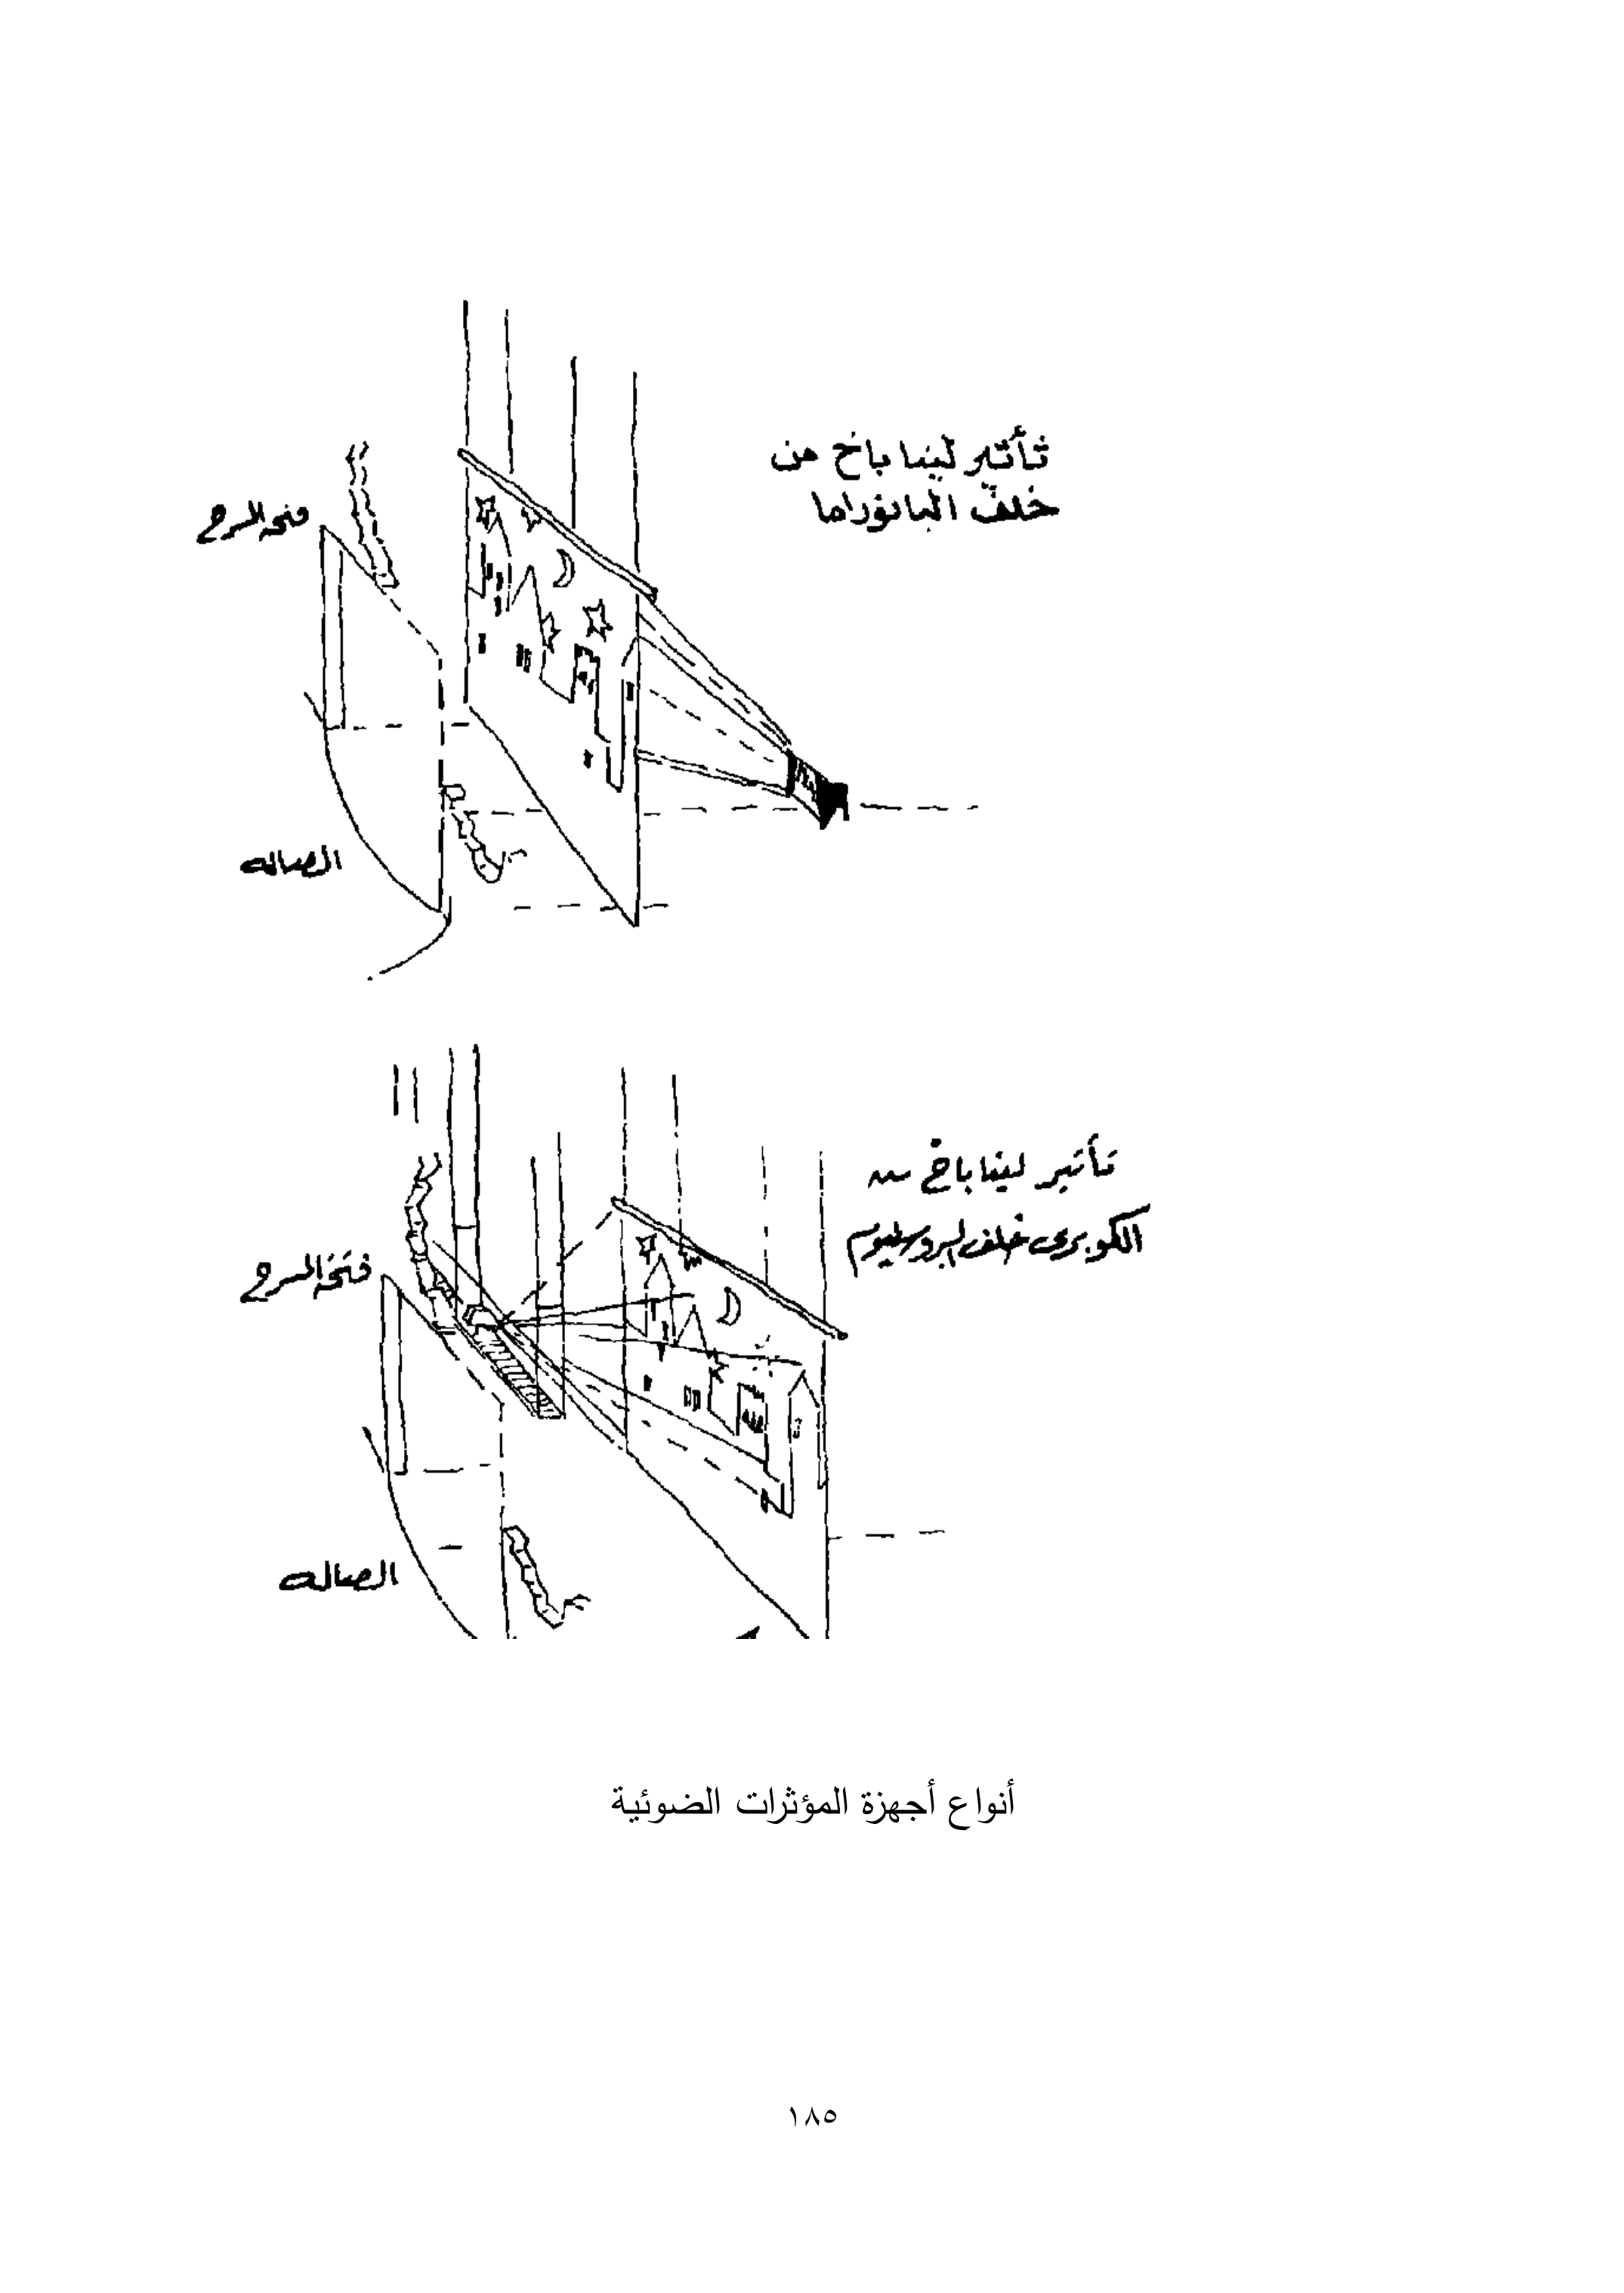 تأثير لينباخ من
خلف البانوراما
فتحة المسرح
الصاله
تأثير لينباخ من
الكوبرى خلف البروسنيوم
فتحة المسرح
الصاله
أنواع أجهزة المؤثرات الضوئية
١٨٥